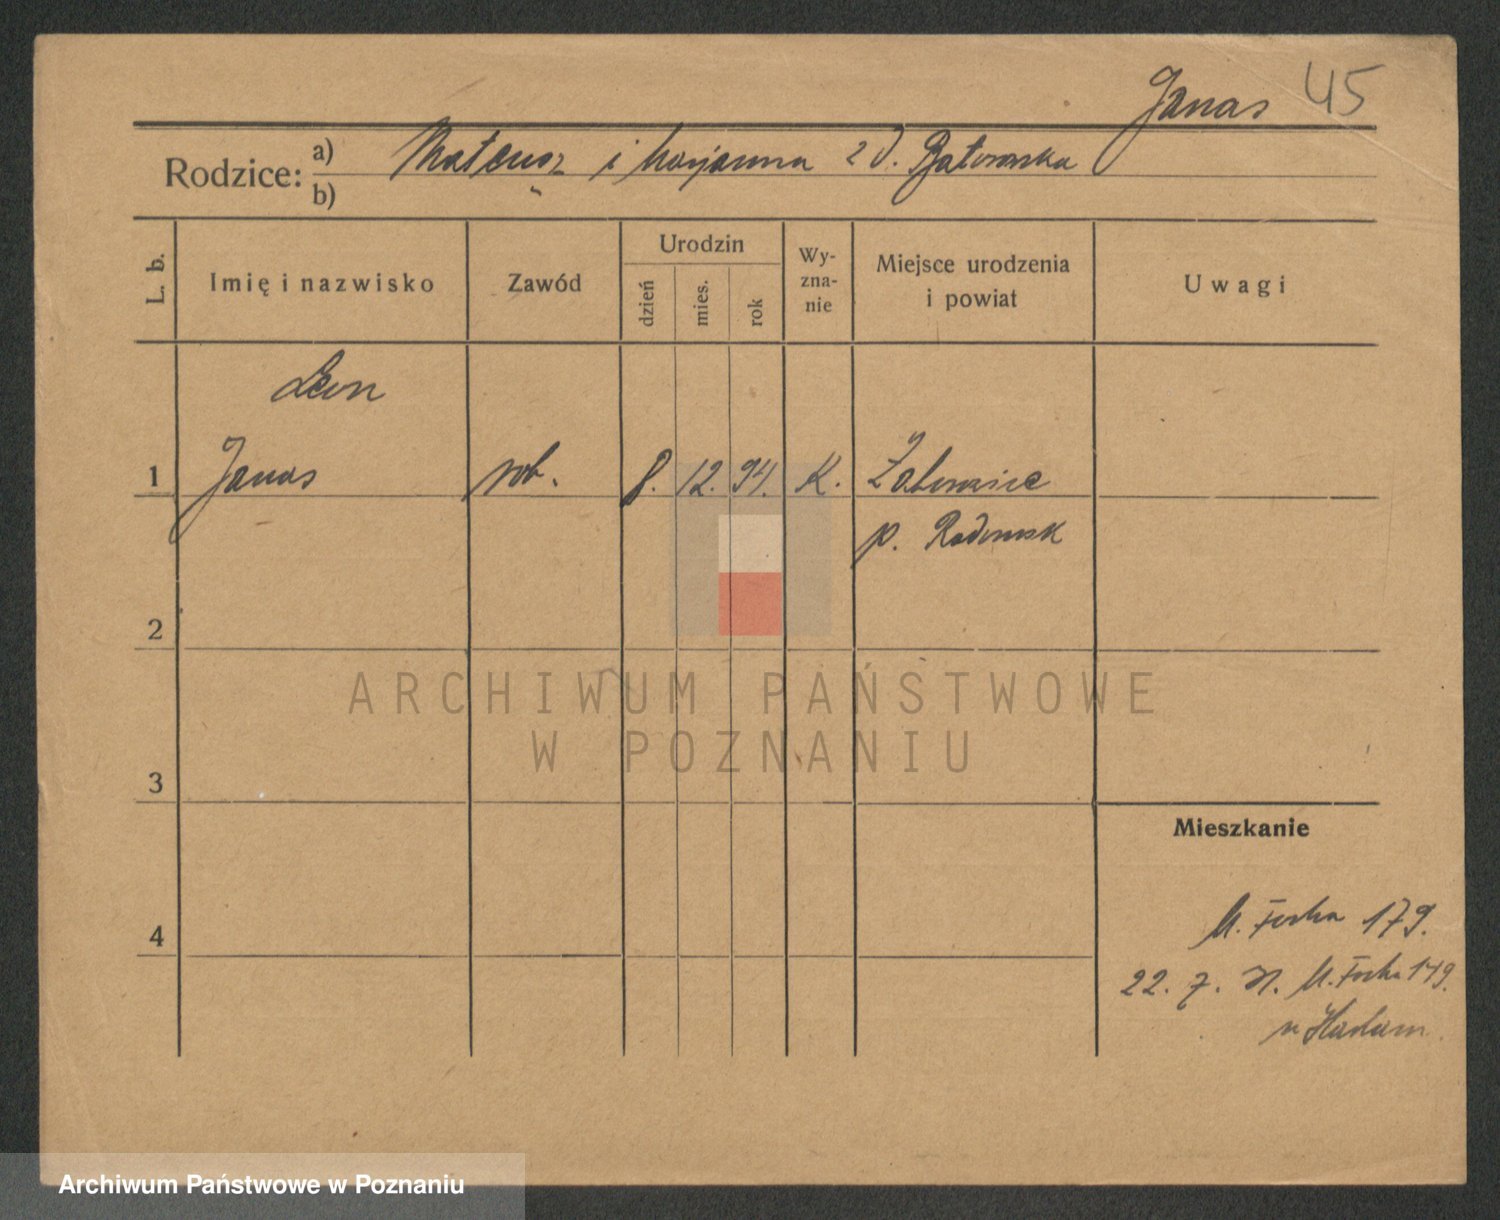 Janas 45
Rodzice: a) Mateusz i Marjanna z d. Batorowska
b)
L. b.
Imię i nazwisko
Zawód
Urodzin
dzień
mies.
rok
Wy-
zna-
nie
Miejsce urodzenia
i powiat
Uwagi
Leon
1 Janas rob. 8. 12. 94. K.
p. Radomsk
2
3
4
Mieszkanie
M. Focha 179.
22. 7. M. Focha 179.
ARCHIWUM PAŃSTWOWE
W POZNANIU
Archiwum Państwowe w Poznaniu